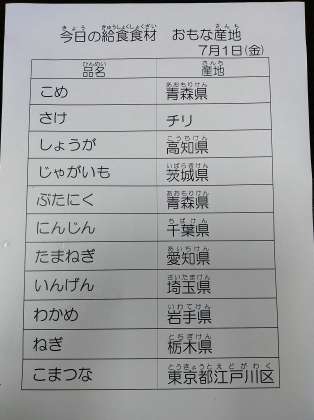 今日の給食食材　おもな産地
7月1日(金)
品名　産地
こめ　青森県
さけ　チリ
しょうが　高知県
じゃがいも　茨城県
ぶたにく　青森県
にんじん　千葉県
たまねぎ　愛知県
いんげん　埼玉県
わかめ　岩手県
ねぎ　栃木県
こまつな　東京都江戸川区